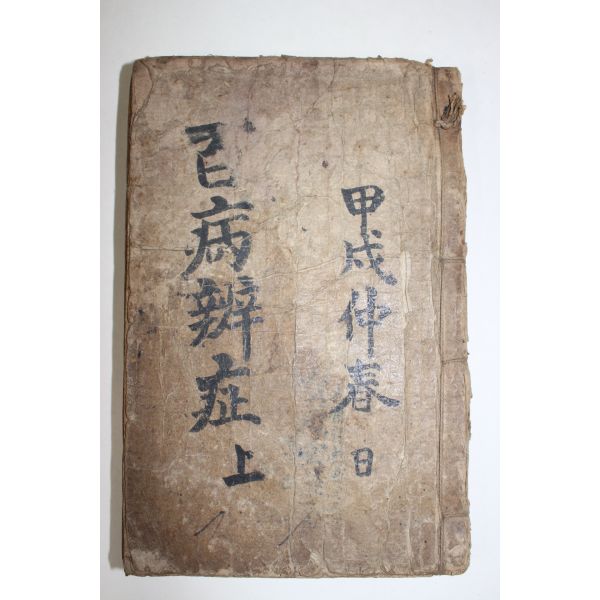 甲戌仲春日
病辨症上